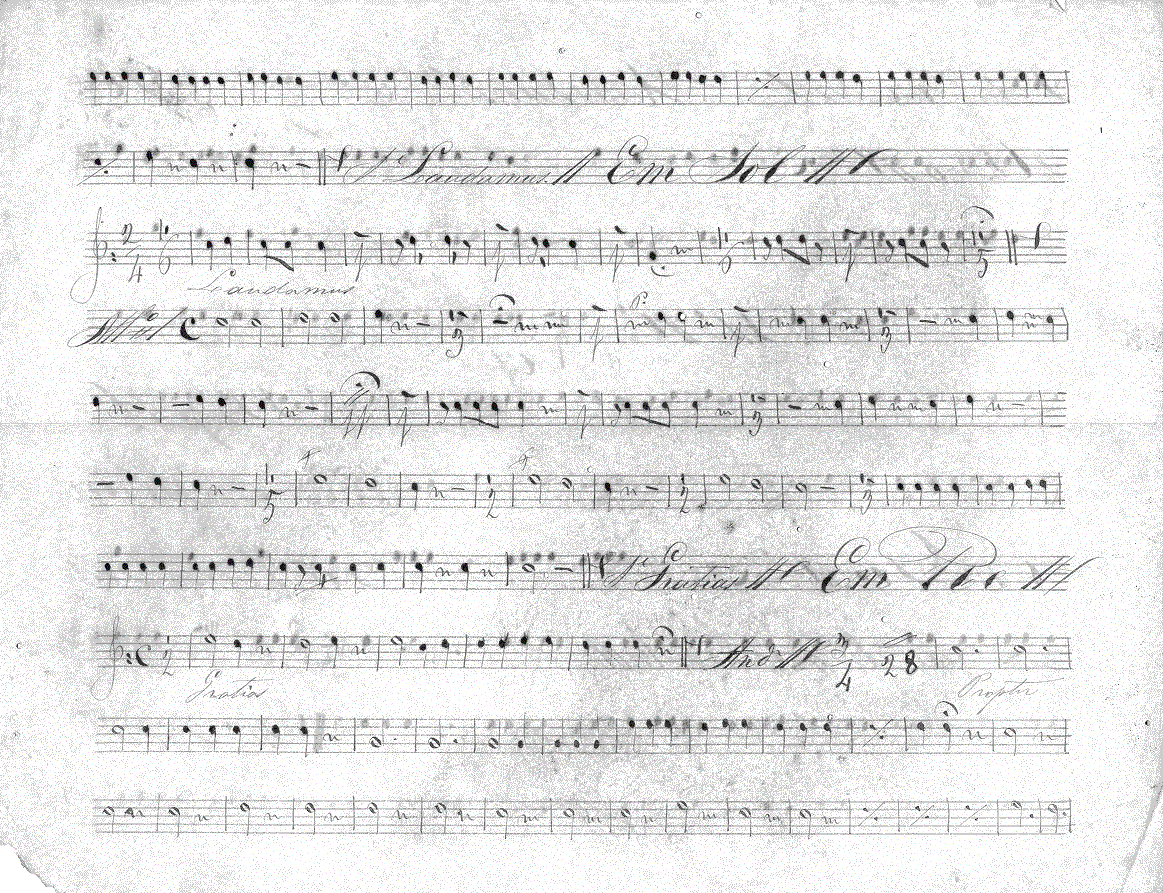 Laudamus // Em Sol //
2/4 6 6 5
Laudamus
C 3 P. 3
3
5 2 2 3
Gratias // Em Do //
C 2 And. // 3/4 28
Gratias Propter